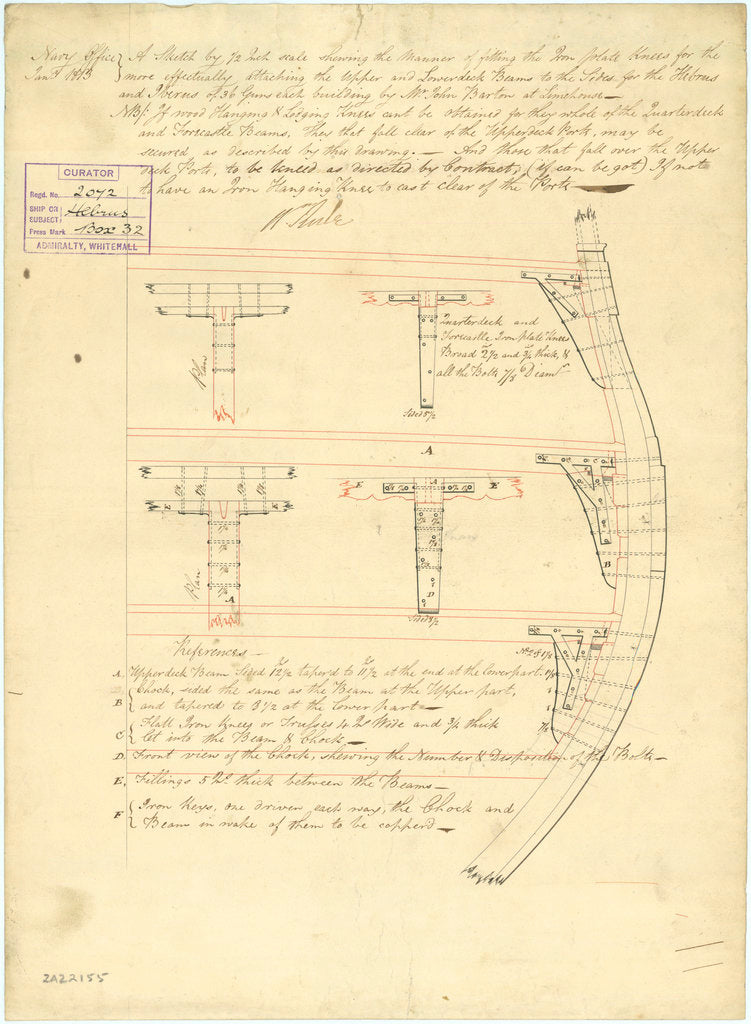 Navy Office A Sketch by 1/2 Inch scale shewing the Manner of fitting the Iron plate Knees for the
Jany. 1813 more effectually attaching the Upper and Lower deck Beams to the Sides for the Hebrus
and of 36 Guns each building by Mr. John Barton at Limehouse —
NB/: If wood Hanging & Lodging Knees cant be obtained for the whole of the Quarterdeck
and Forecastle Beams, Those that fall clear of the Upperdeck Ports, may be
secured as described by this drawing. — And those that fall over the Upper
deck Ports, to be kneed as directed by Contract, (if can be got) If not
to have an Iron Hanging Knee to cast clear of the Ports —
CURATOR
Regd. No. 2072
SHIP OR SUBJECT Hebrus
Press Mark Box 32
ADMIRALTY, WHITEHALL
Plan
Quarterdeck and
Forecastle Iron plate Knees
Broad 2 1/2 and 3/4 thick, &
all the Bolts 7/8 Diamr.
Sided 8 1/2
A
E E
E A E
C
B
Plan
A
D
Sided 9 1/2
References —
A. Upperdeck Beam Sided 12 1/2 taper'd to 11 1/2 at the end at the lower part.
B Chock, sided the same as the Beam at the Upper part,
and tapered to 3 1/2 at the lower part —
C Flatt Iron Kneeg or Trusses 4 Ins Wide and 3/4 thick
let into the Beam & Chock —
D. Front view of the Chock, shewing the Number & Disposition of the Bolts —
E. Fillings 5 Ins. thick between the Beams —
F Iron Keys, one driven each way, the Chock and
Beam in wake of them to be copperd —
2A22155